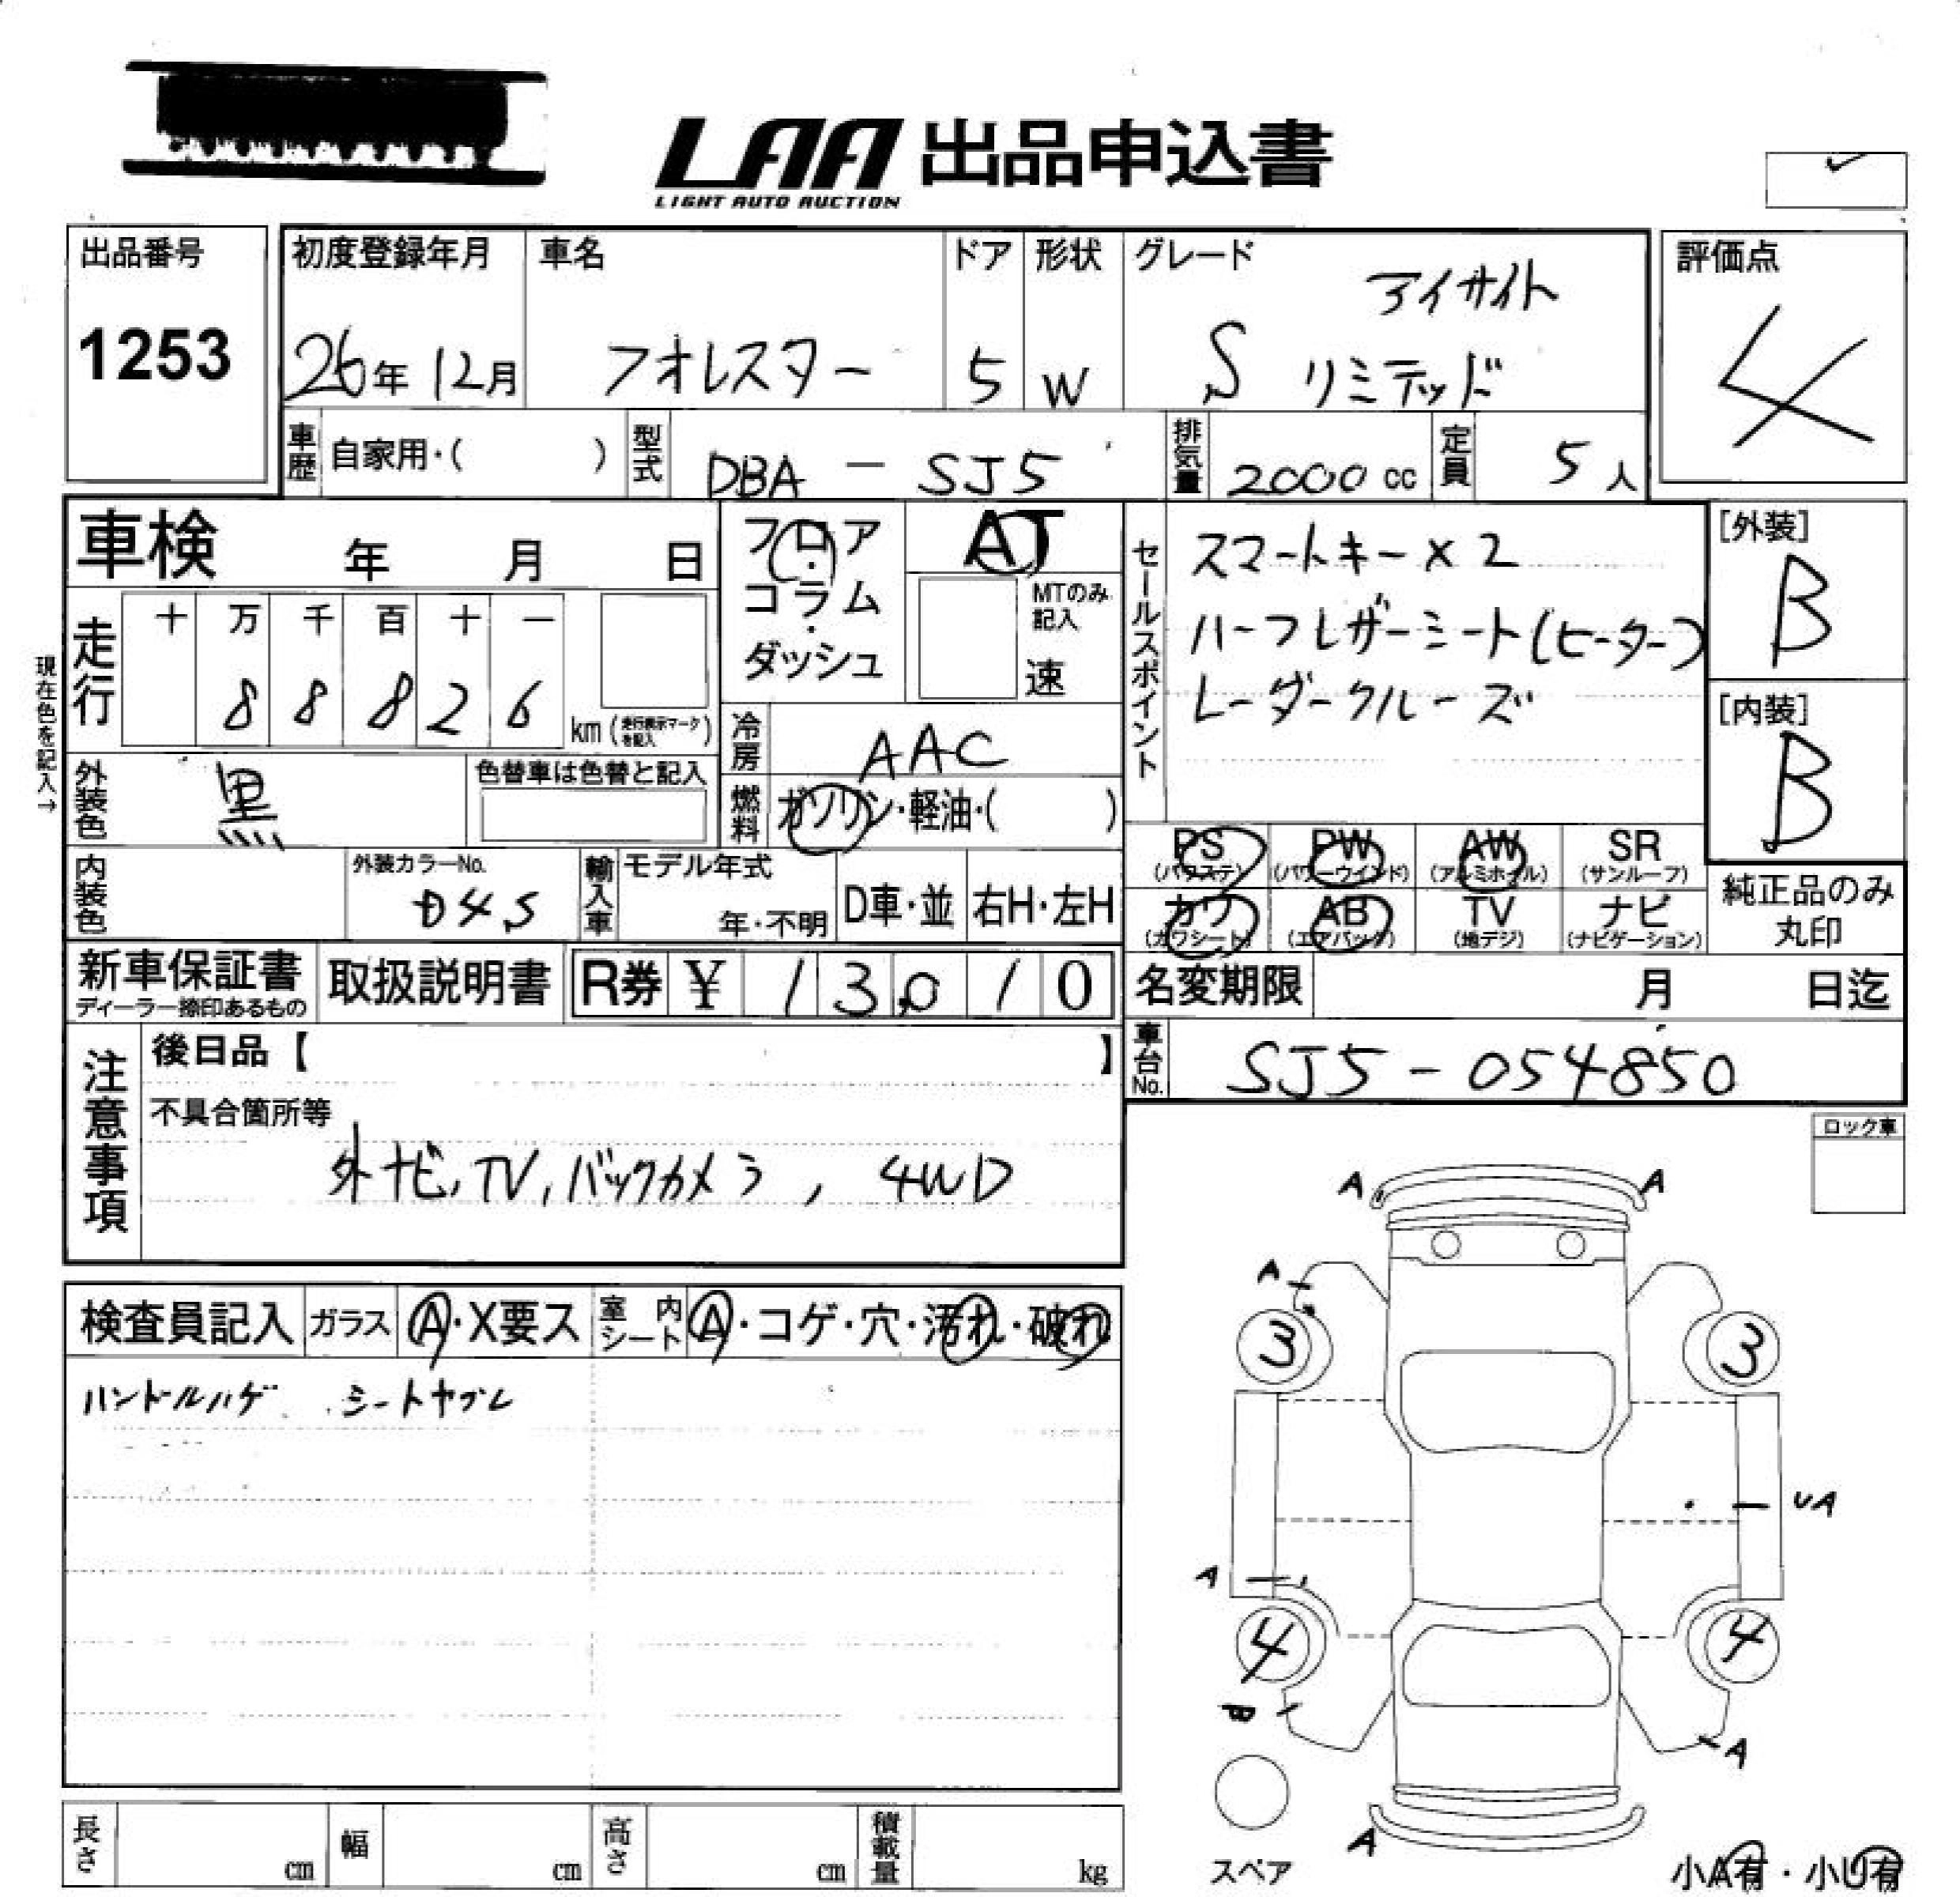 LAA 出品申込書
LIGHT AUTO AUCTION
出品番号
1253
初度登録年月
26年 12月
車名
フォレスター
ドア
5
形状
W
グレード
アイサイト
S リミテッド
評価点
4
車歴 自家用・( )
型式 DBA - SJ5
排気量 2000 cc
定員 5 人
車検 年 月 日
フロア・コラム・ダッシュ
AT
MTのみ記入
速
セールスポイント
スマートキー×2
ハーフレザーシート(ヒーター)
レーダークルーズ
[外装]
B
[内装]
B
現在色を記入→
走行
十 万 千 百 十 一
8 8 8 2 6
km (走行表示マークを記入)
冷房 AAC
外装色 黒
色替車は色替と記入
燃料 ガソリン・軽油・( )
内装色
外装カラーNo.
D4S
輸入車 モデル年式
年・不明
D車・並 右H・左H
PS (パワステ) PW (パワーウインド) AW (アルミホイル) SR (サンルーフ)
カワ (カワシート) AB (エアバック) TV (地デジ) ナビ (ナビゲーション)
純正品のみ
丸印
新車保証書
ディーラー捺印あるもの
取扱説明書
R券 ¥ 13,010
名変期限 月 日迄
車台No. SJ5 - 054850
注意事項
後日品【 】
不具合箇所等
外ナビ, TV, バックカメラ, 4WD
ロック車
検査員記入 ガラス A・X要ス 室内シート A・コゲ・穴・汚れ・破れ
ハンドルハゲ シートヤブレ
A A
A
3 3
UA
A
4 4
B
A
A
スペア
小A有・小U有
長さ cm 幅 cm 高さ cm 積載量 kg